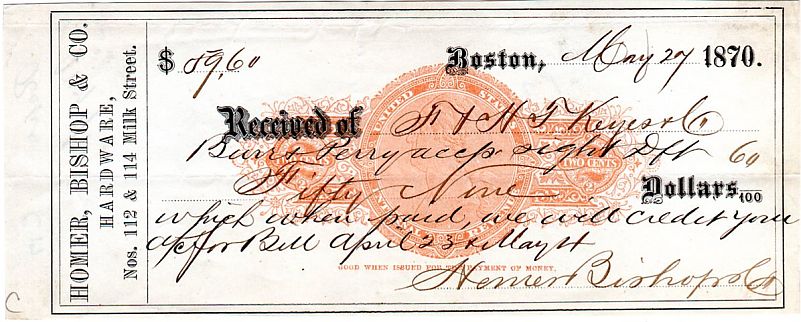 HOMER, BISHOP & CO.
HARDWARE,
Nos. 112 & 114 Milk Street.
$ 59,60
Boston, May 27 1870.
Received of F & H T Keyes & Co
Burr & Perry accep sight Dft 60
Fifty Nine Dollars 100
which when paid, we will credit your
a/c for Bill April 23 & May 4
Homer Bishop & Co
UNITED STATES
INTERNAL REVENUE
TWO CENTS
2
GOOD WHEN ISSUED FOR THE PAYMENT OF MONEY.
C